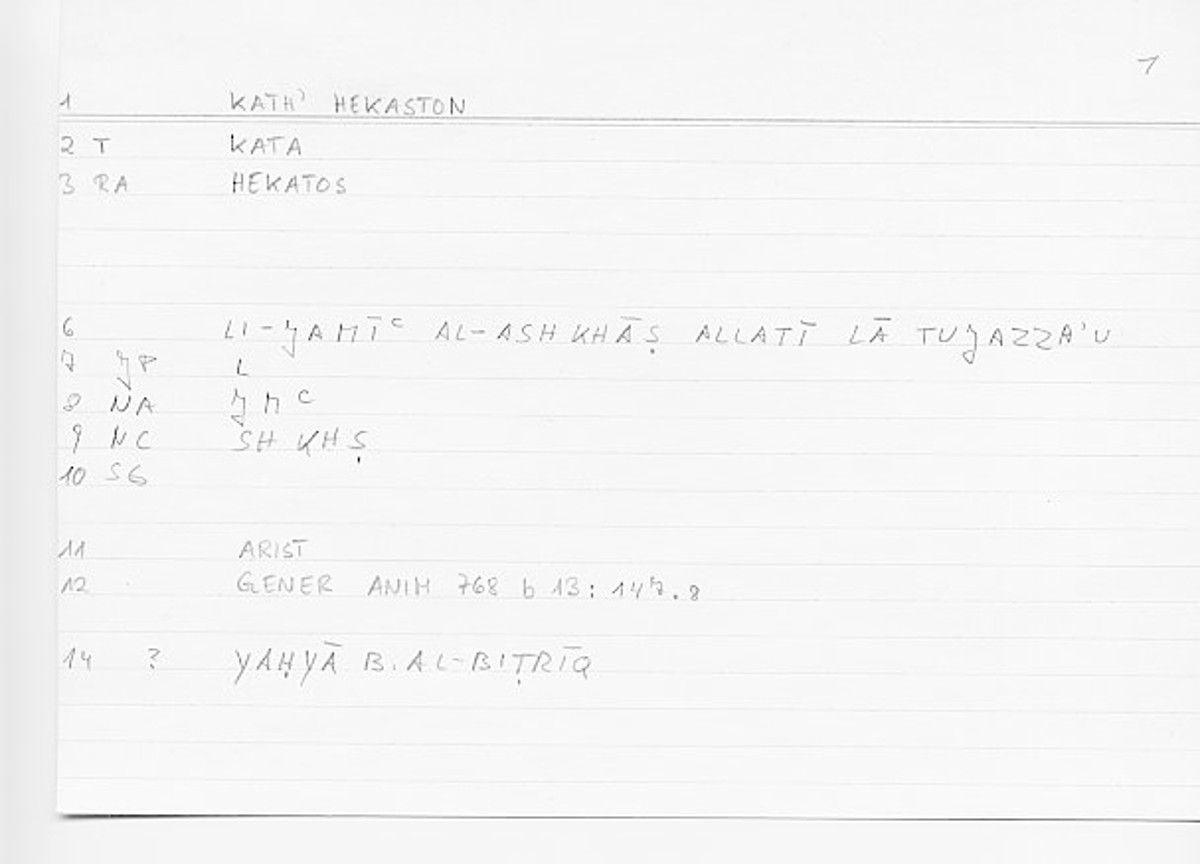 1
1 KATH' HEKASTON
2 T KATA
3 RA HEKATOS
6 LI-JAMĪʿ AL-ASHKHĀṢ ALLATĪ LĀ TUJAZZA'U
7 JP L
8 NA JMʿ
9 NC SHKHṢ
10 SG
11 ARIST
12 GENER ANIM 768 b 13: 147.8
14 ? YAḤYĀ B. AL-BIṬRĪQ